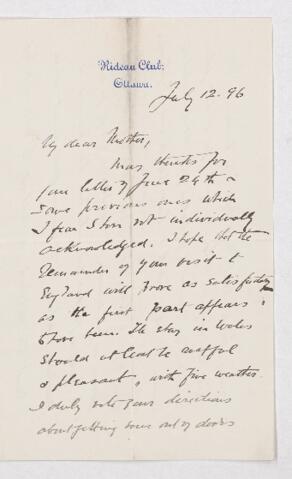 Rideau Club.
Ottawa.
July 12. 96
My dear Mother,
Many thanks for
your letter of June 24th &
some previous ones which
I fear I have not individually
acknowledged. I hope that the
remainder of your visit to
England will prove as satisfactory
as the first part appears
to have been. The stay in Wales
should at least be restful
& pleasant, with fine weather.
I duly note your directions
about getting home out of doors